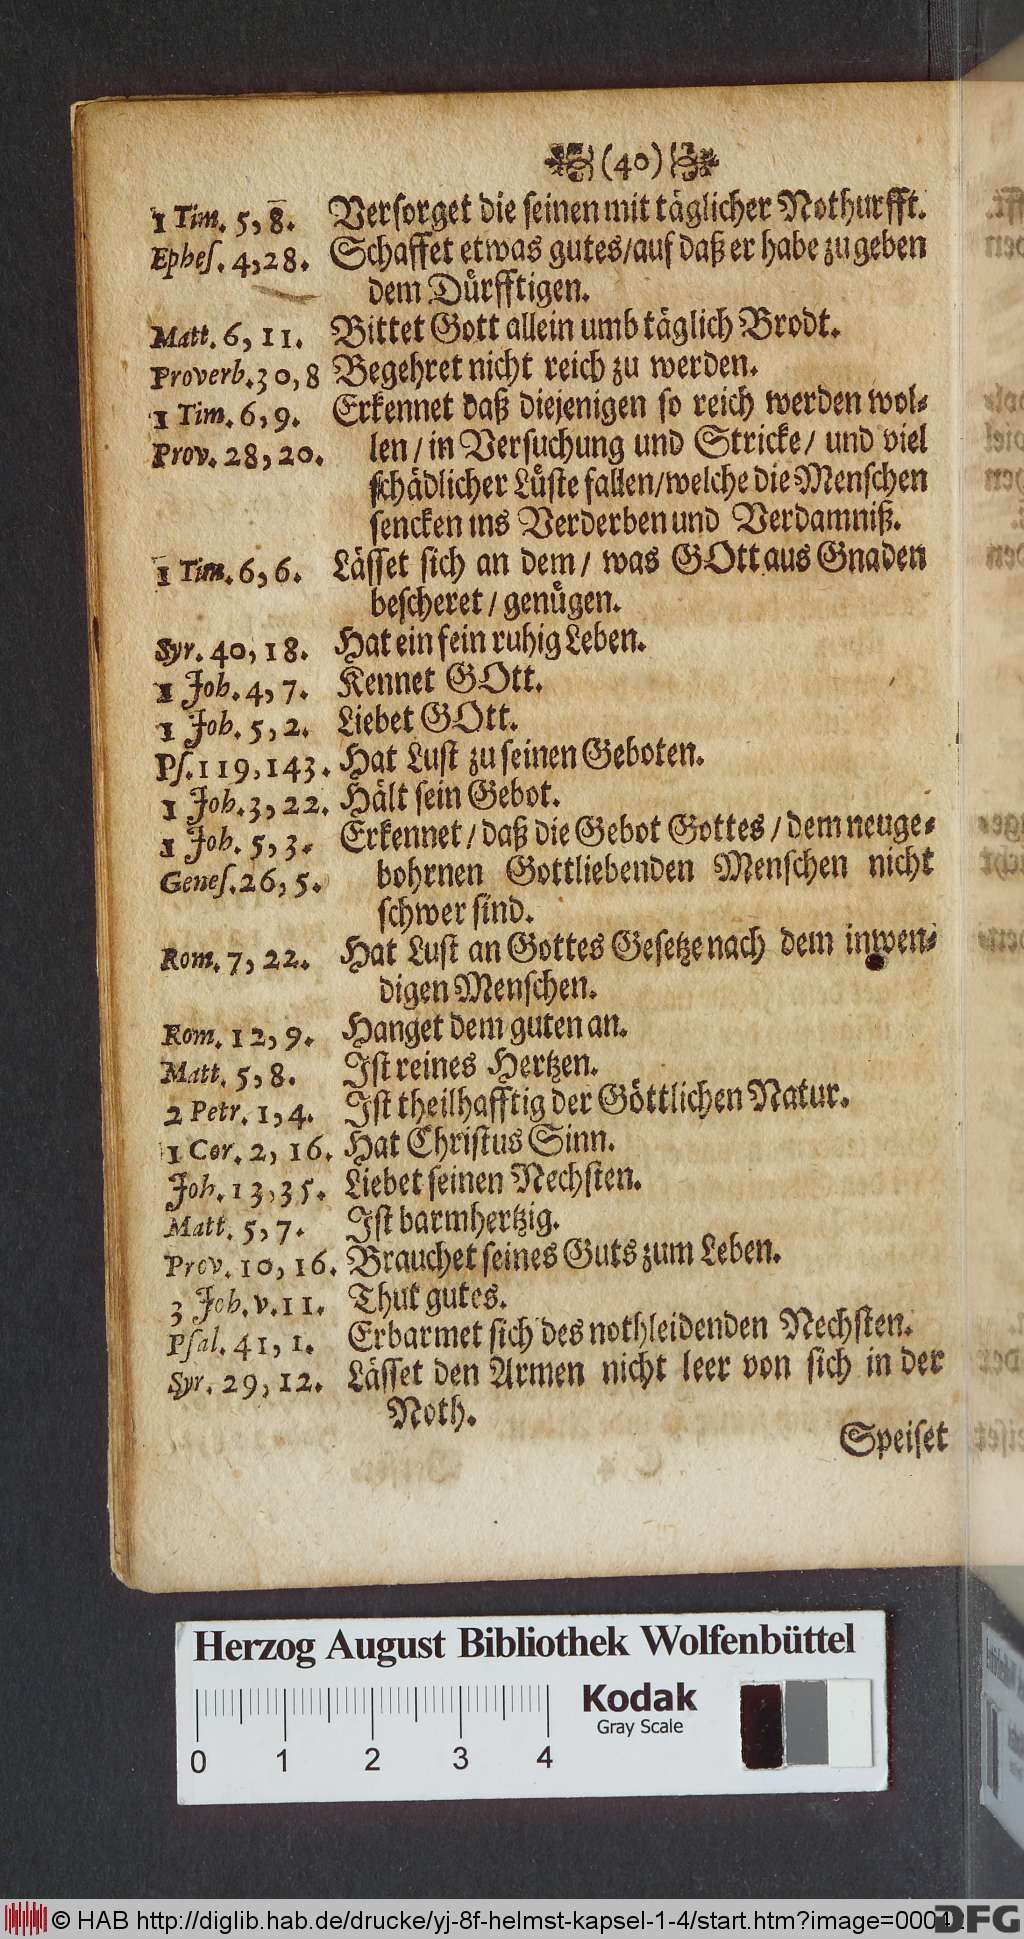 (40)
1 Tim. 5, 8. Versorget die seinen mit täglicher Nothurfft.
Ephes. 4, 28. Schaffet etwas gutes/ auf daß er habe zu geben
dem Dürfftigen.
Matt. 6, 11. Bittet Gott allein umb täglich Brodt.
Proverb. 30, 8 Begehret nicht reich zu werden.
1 Tim. 6, 9. Erkennet daß diejenigen so reich werden wol-
Prov. 28, 20. len/ in Versuchung und Stricke/ und viel
schädlicher Lüste fallen/ welche die Menschen
sencken ins Verderben und Verdamniß.
1 Tim. 6, 6. Lässet sich an dem/ was GOtt aus Gnaden
bescheret/ genügen.
Syr. 40, 18. Hat ein fein ruhig Leben.
1 Joh. 4, 7. Kennet GOtt.
1 Joh. 5, 2. Liebet GOtt.
Ps. 119, 143. Hat Lust zu seinen Geboten.
1 Joh. 3, 22. Hält sein Gebot.
1 Joh. 5, 3. Erkennet/ daß die Gebot Gottes/ dem neuge-
Genes. 26, 5. bohrnen Gottliebenden Menschen nicht
schwer sind.
Rom. 7, 22. Hat Lust an Gottes Gesetze nach dem inwen-
digen Menschen.
Rom. 12, 9. Hanget dem guten an.
Matt. 5, 8. Ist reines Hertzen.
2 Petr. 1, 4. Ist theilhafftig der Göttlichen Natur.
1 Cor. 2, 16. Hat Christus Sinn.
Joh. 13, 35. Liebet seinen Nechsten.
Matt. 5, 7. Ist barmhertzig.
Prov. 10, 16. Brauchet seines Guts zum Leben.
3 Joh. v. 11. Thut gutes.
Psal. 41, 1. Erbarmet sich des nothleidenden Nechsten.
Syr. 29, 12. Lässet den Armen nicht leer von sich in der
Noth.
Speiset
Herzog August Bibliothek Wolfenbüttel
Kodak
Gray Scale
0 1 2 3 4
© HAB http://diglib.hab.de/drucke/yj-8f-helmst-kapsel-1-4/start.htm?image=00042
DFG